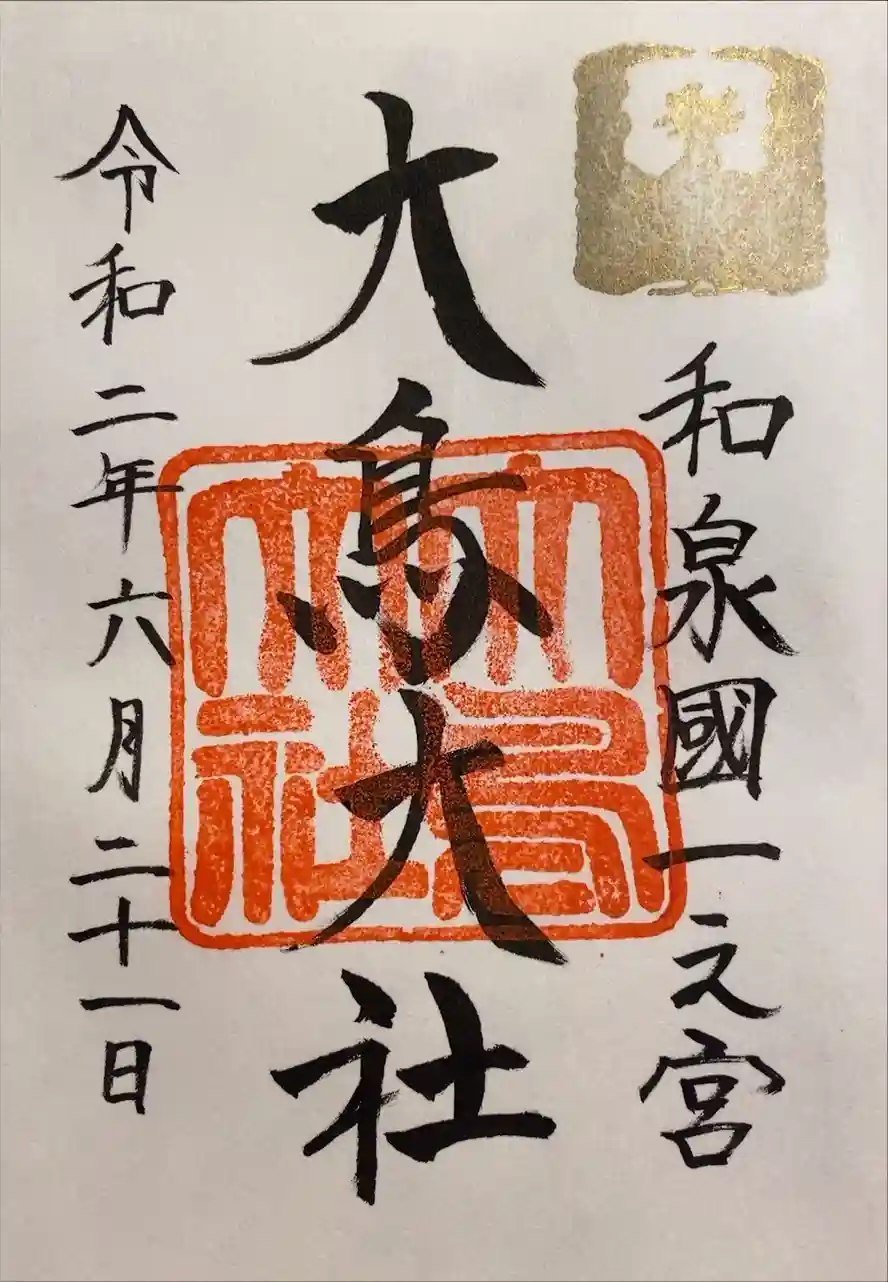 和泉國一之宮
大鳥大社
大鳥
大社
令和二年六月二十一日